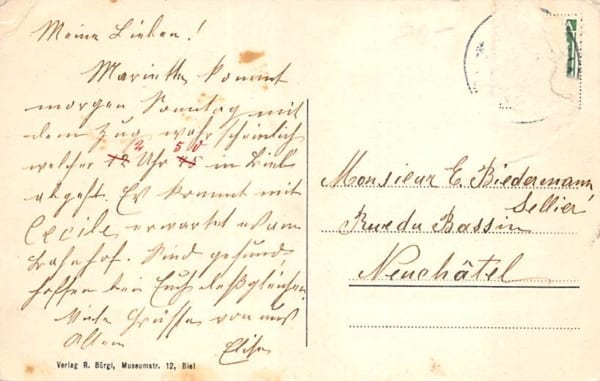 Meine Lieben!
Marietta kommt
morgen Sonntag mit
dem Zug wahrscheinlich
welcher 2 Uhr 50 in Biel
abgeht. Es kommt mit
Cecile, erwartet es am
Bahnhof. Sind gesund,
hoffen bei Euch desgleichen.
Viele Grüsse von uns
Allen
Elise
Monsieur E. Biedermann
Sellier
Rue du Bassin
Neuchâtel
Verlag R. Bürgi, Museumstr. 12, Biel